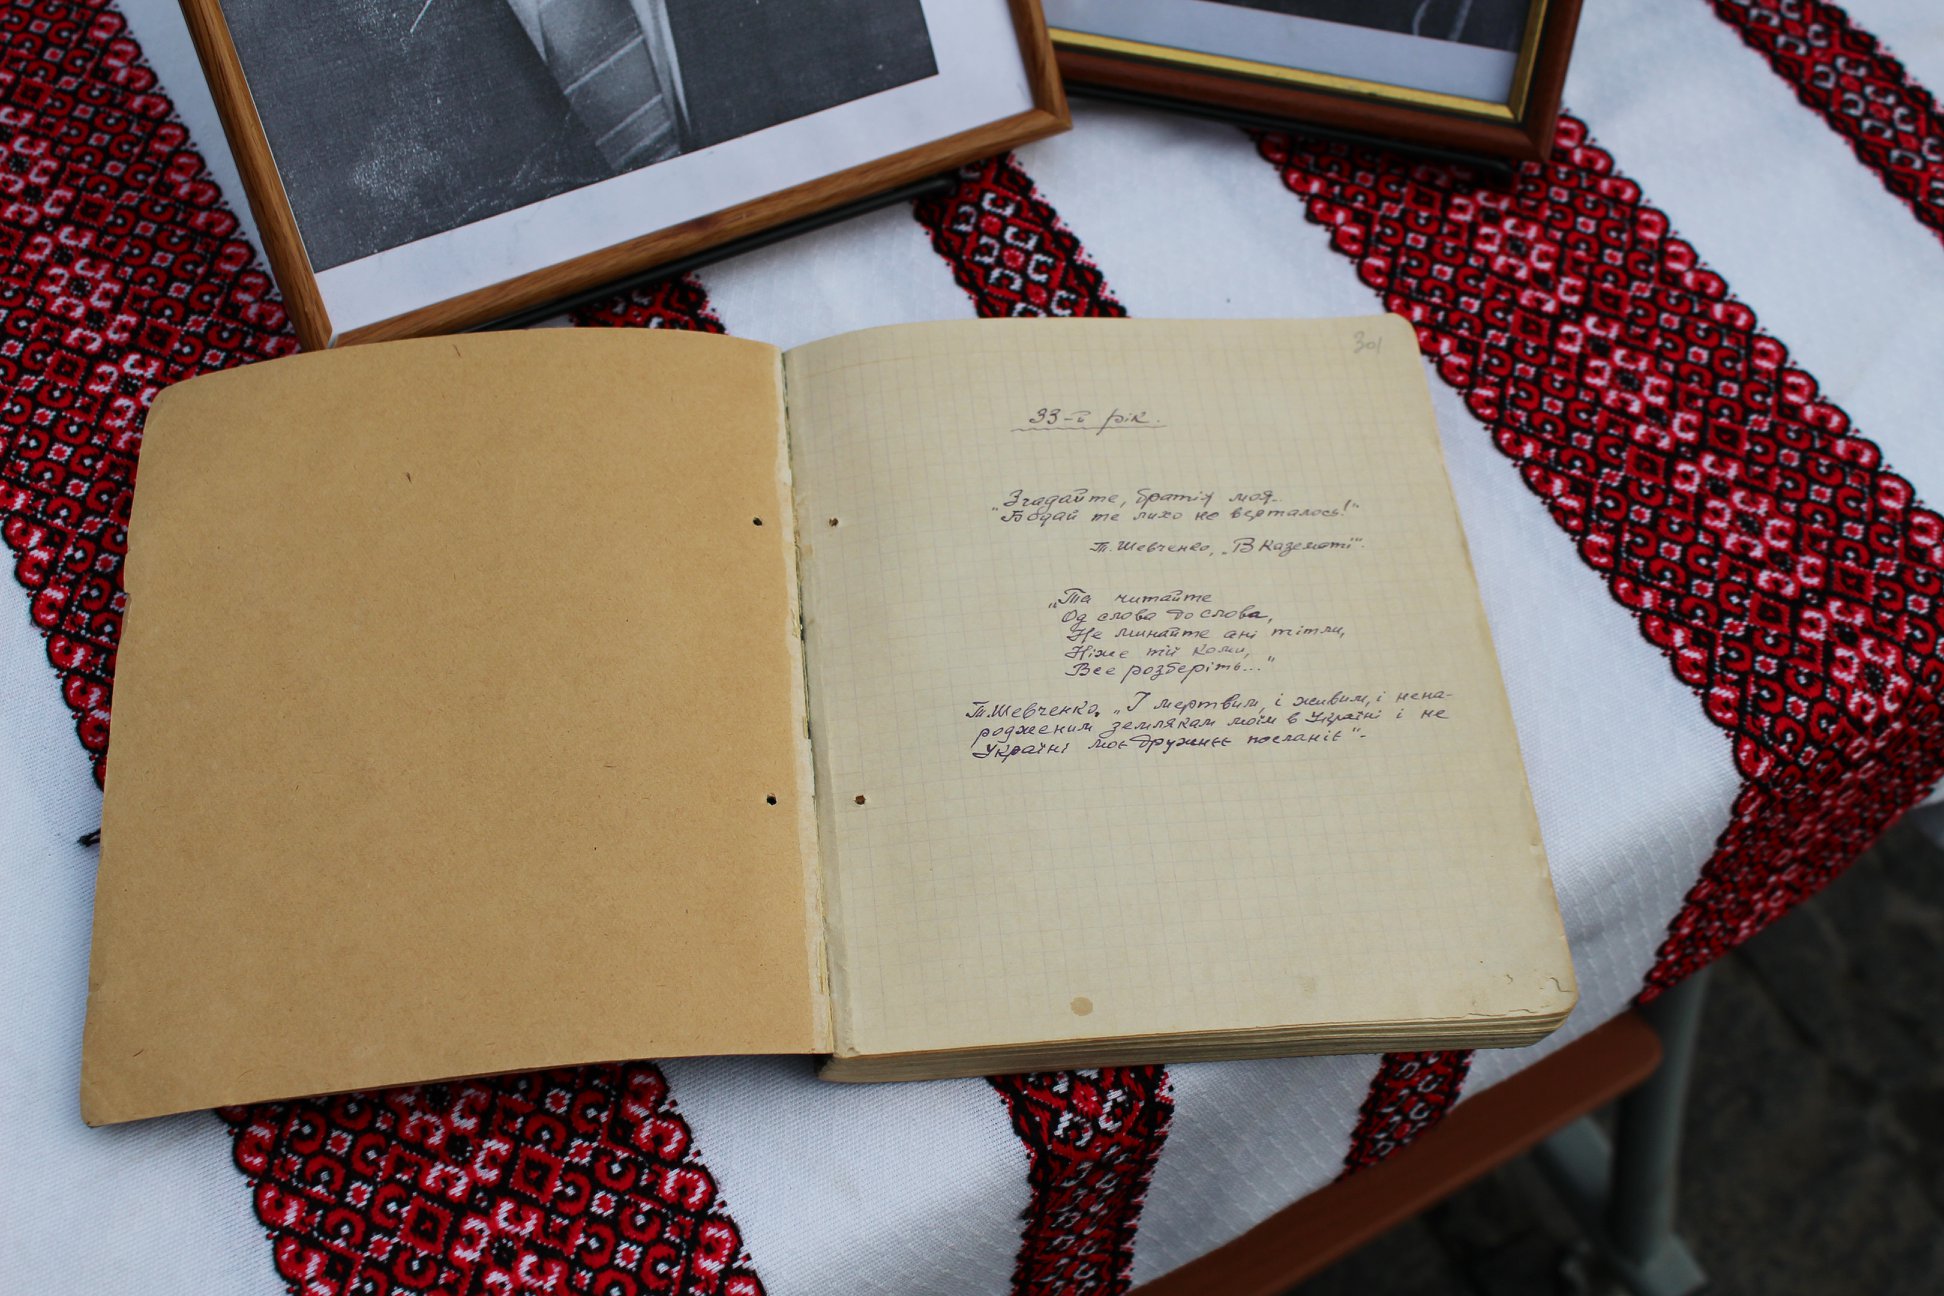 301
33-й рік.
„Згадайте, братія моя..
Бодай те лихо не верталось!"
Т. Шевченко, „В казематі".
„Та читайте
Од слова до слова,
Не минайте ані титли,
Ніже тії коми,
Все розберіть..."
Т. Шевченко, „І мертвим, і живим, і нена-
родженим землякам моїм в Україні і не
Україні моє дружнєє посланіє".